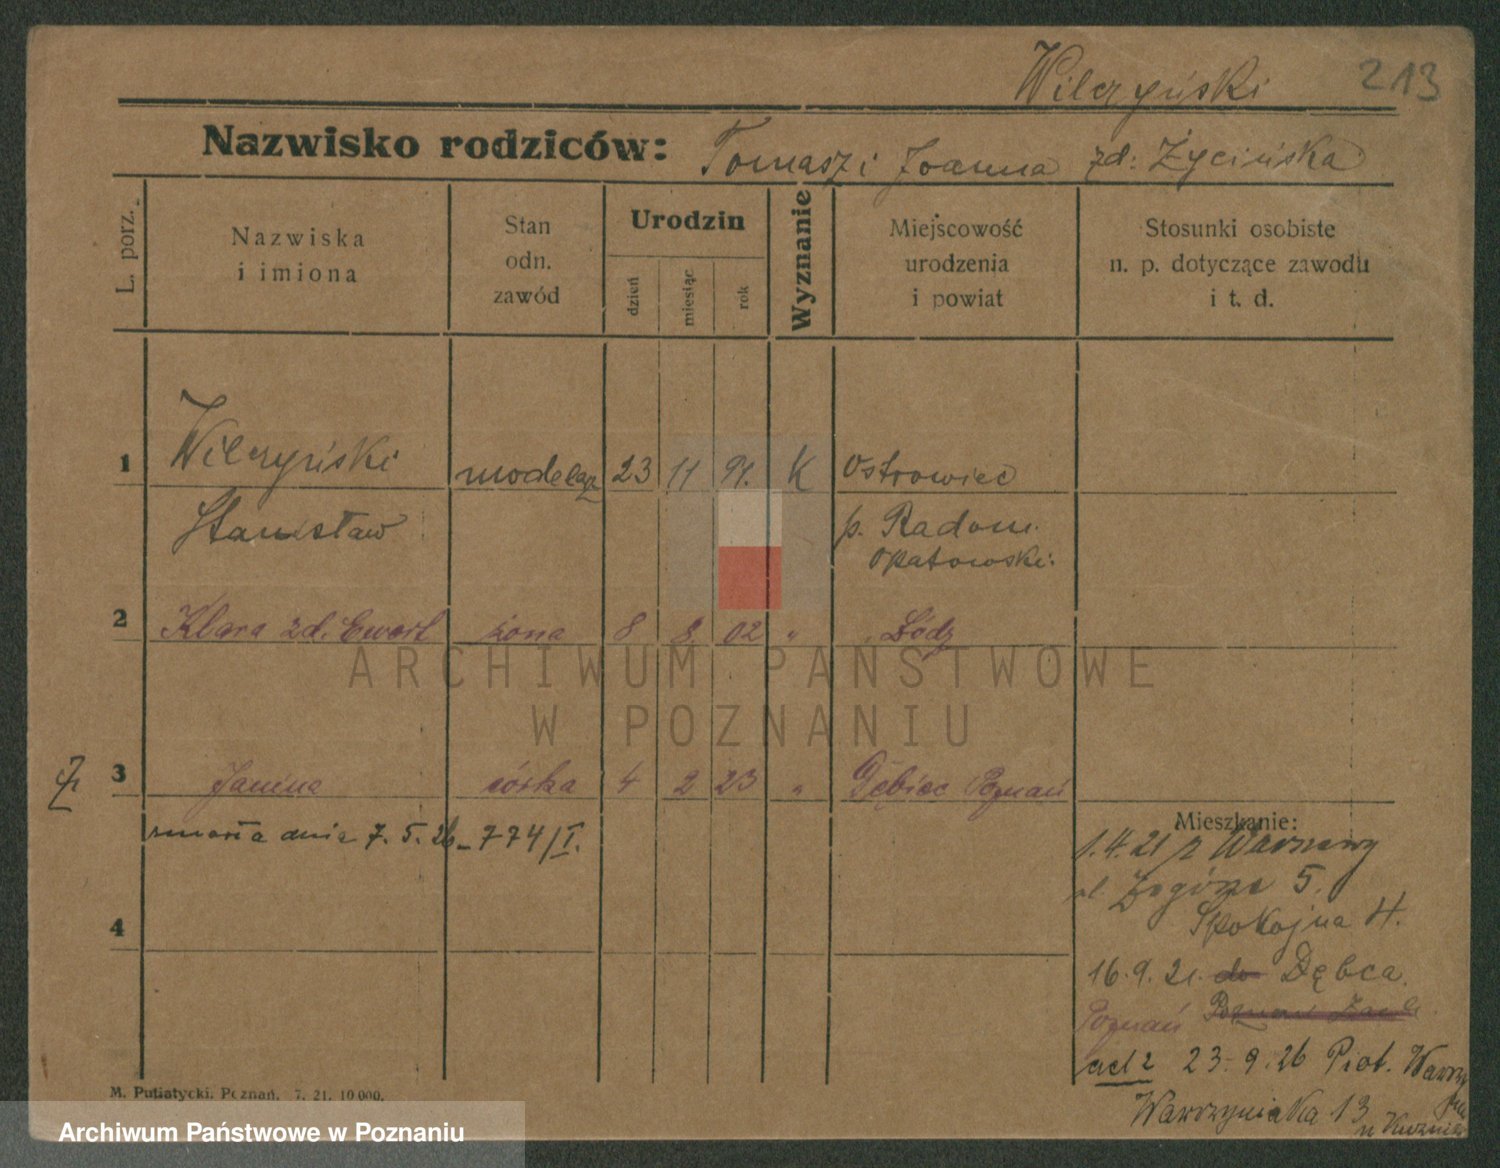 Wilczyński 213
Nazwisko rodziców: Tomasz i Joanna zd: Życińska
L. porz.
Nazwiska
i imiona
Stan
odn.
zawód
Urodzin
dzień
miesiąc
rok
Wyznanie
Miejscowość
urodzenia
i powiat
Stosunki osobiste
n. p. dotyczące zawodu
i t. d.
1 Wilczyński modelarz 23 11 91. K Ostrowiec
Stanisław p. Radom
Opatowski:
2 Klara zd. Ewert żona 8 8 02 " Łódz
3 Janina córka 4 2 23 " Dębiec Poznań
zmarła dnia 7. 5. 26 - 774/I.
Mieszkanie:
1.4.21 z Warszawy
ul. 5.
Spokojna 4.
4
16.9.21. do Dębca.
Poznań Poznań
ad 2 23.9.26 Piot. Wawrzy
Wawrzyniaka 13
M. Putiatycki. Poznań. 7. 21. 10 000.
ARCHIWUM PAŃSTWOWE
W POZNANIU
Archiwum Państwowe w Poznaniu